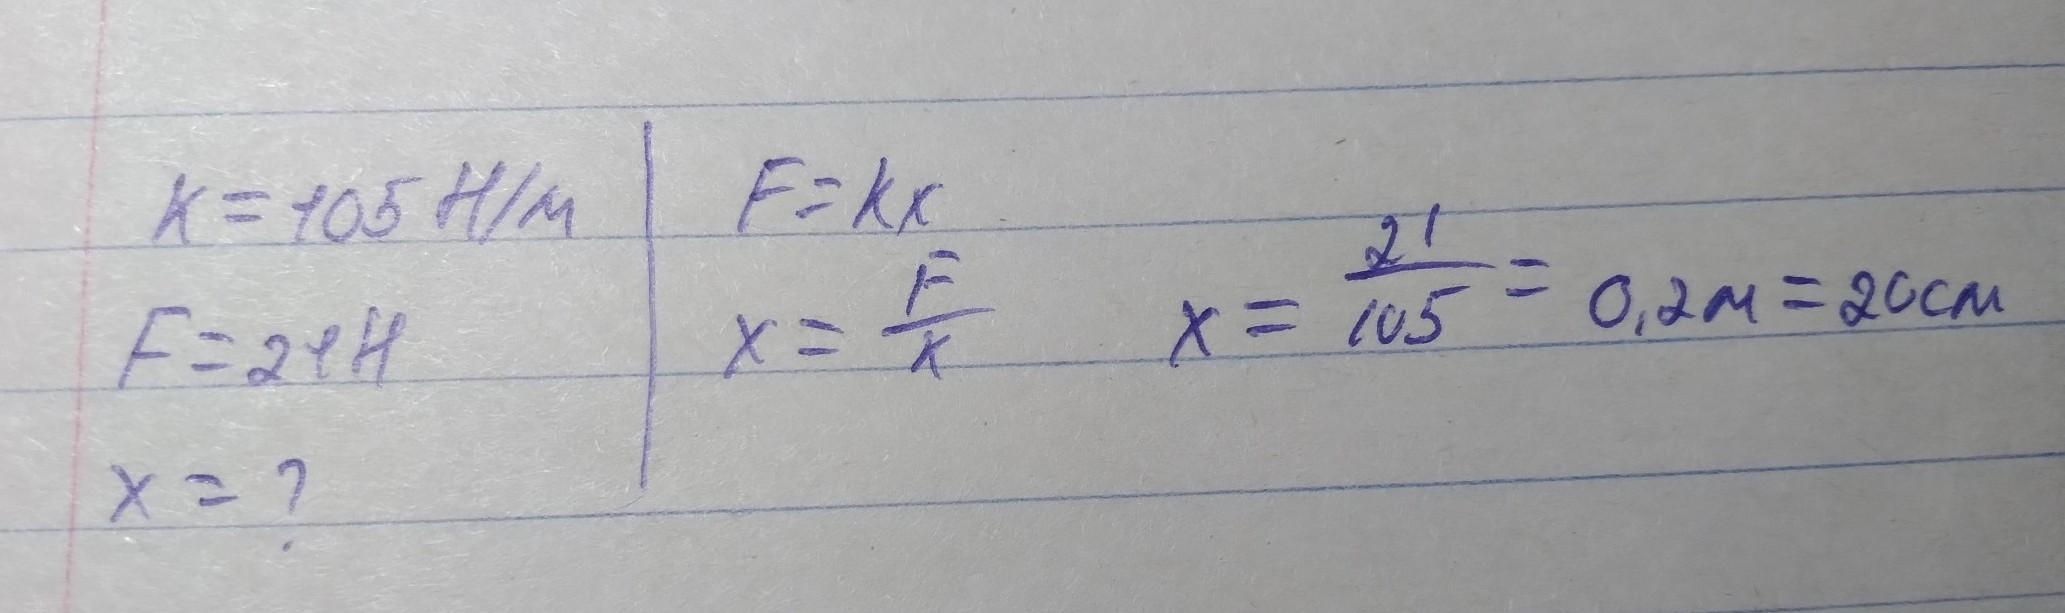 k = 105 Н/м
F = 21 Н
x = ?
F = kx
x = F/k x = 21/105 = 0,2 м = 20 см